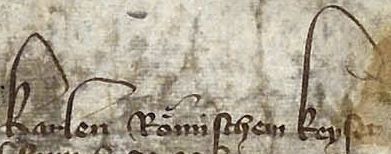 karlen Römischem keyser